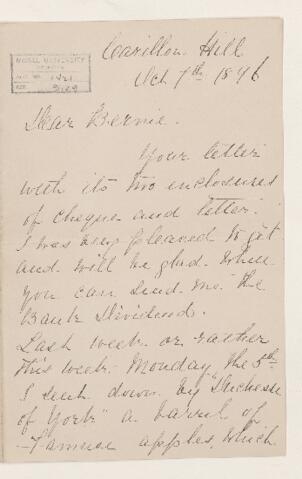 McGILL UNIVERSITY
ACC. NO. 1421
REF.
Carillon Hill
Oct 7th 1896
Dear Bernie.
Your letter
with its two enclosures
of cheque and letter.
I was very pleased to get
and will be glad when
you can send me the
Bank Dividend.
Last week or rather
this week Monday the 5th
I sent down by "Duchess
of York" a barrel of
Fameuse apples, which